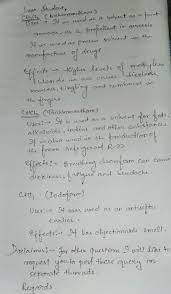 Dear Student,
CH2Cl2 (Dichloromethane)
Uses :- It is used as a solvent as a paint
remover, as a propellant in aerosols
It is used as process solvent in the
manufacture of drugs
Effects :- Higher levels of methylene
chloride in air causes dizziness,
nausea, tingling and numbness in
the fingers
CHCl3 (Trichloromethane)
Uses :- It is used as a solvent for fats,
alkaloids, iodine and other substances
It is also used in the production of
the freon refrigerant R-22
Effects :- Breathing chloroform can cause
dizziness, fatigue and headache
CHI3 (Iodoform)
Uses :- It was used as an antiseptic
earlier.
Effects :- It has objectionable smell.
for other questions I will like to
request you to post these query in
separate threads.
Regards